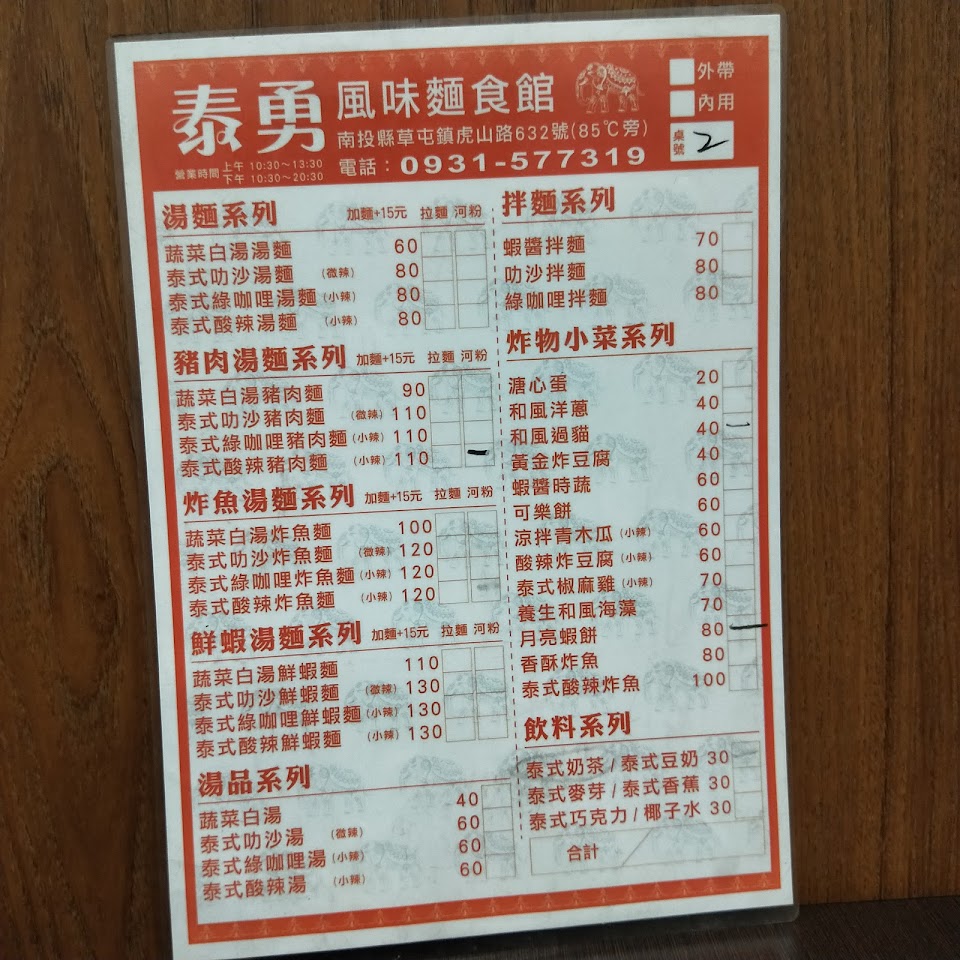 泰勇 風味麵食館
外帶
內用
桌號 2
南投縣草屯鎮虎山路632號(85℃旁)
營業時間 上午 10:30～13:30
下午 10:30～20:30
電話：0931-577319
湯麵系列 加麵+15元 拉麵 河粉
蔬菜白湯湯麵 60
泰式叻沙湯麵 (微辣) 80
泰式綠咖哩湯麵 (小辣) 80
泰式酸辣湯麵 (小辣) 80
豬肉湯麵系列 加麵+15元 拉麵 河粉
蔬菜白湯豬肉麵 90
泰式叻沙豬肉麵 (微辣) 110
泰式綠咖哩豬肉麵 (小辣) 110
泰式酸辣豬肉麵 (小辣) 110
炸魚湯麵系列 加麵+15元 拉麵 河粉
蔬菜白湯炸魚麵 100
泰式叻沙炸魚麵 (微辣) 120
泰式綠咖哩炸魚麵 (小辣) 120
泰式酸辣炸魚麵 (小辣) 120
鮮蝦湯麵系列 加麵+15元 拉麵 河粉
蔬菜白湯鮮蝦麵 110
泰式叻沙鮮蝦麵 (微辣) 130
泰式綠咖哩鮮蝦麵 (小辣) 130
泰式酸辣鮮蝦麵 (小辣) 130
湯品系列
蔬菜白湯 40
泰式叻沙湯 (微辣) 60
泰式綠咖哩湯 (小辣) 60
泰式酸辣湯 (小辣) 60
拌麵系列
蝦醬拌麵 70
叻沙拌麵 80
綠咖哩拌麵 80
炸物小菜系列
溏心蛋 20
和風洋蔥 40
和風過貓 40
黃金炸豆腐 40
蝦醬時蔬 60
可樂餅 60
涼拌青木瓜 (小辣) 60
酸辣炸豆腐 (小辣) 60
泰式椒麻雞 (小辣) 70
養生和風海藻 70
月亮蝦餅 80
香酥炸魚 80
泰式酸辣炸魚 100
飲料系列
泰式奶茶/泰式豆奶 30
泰式麥芽/泰式香蕉 30
泰式巧克力/椰子水 30
合計